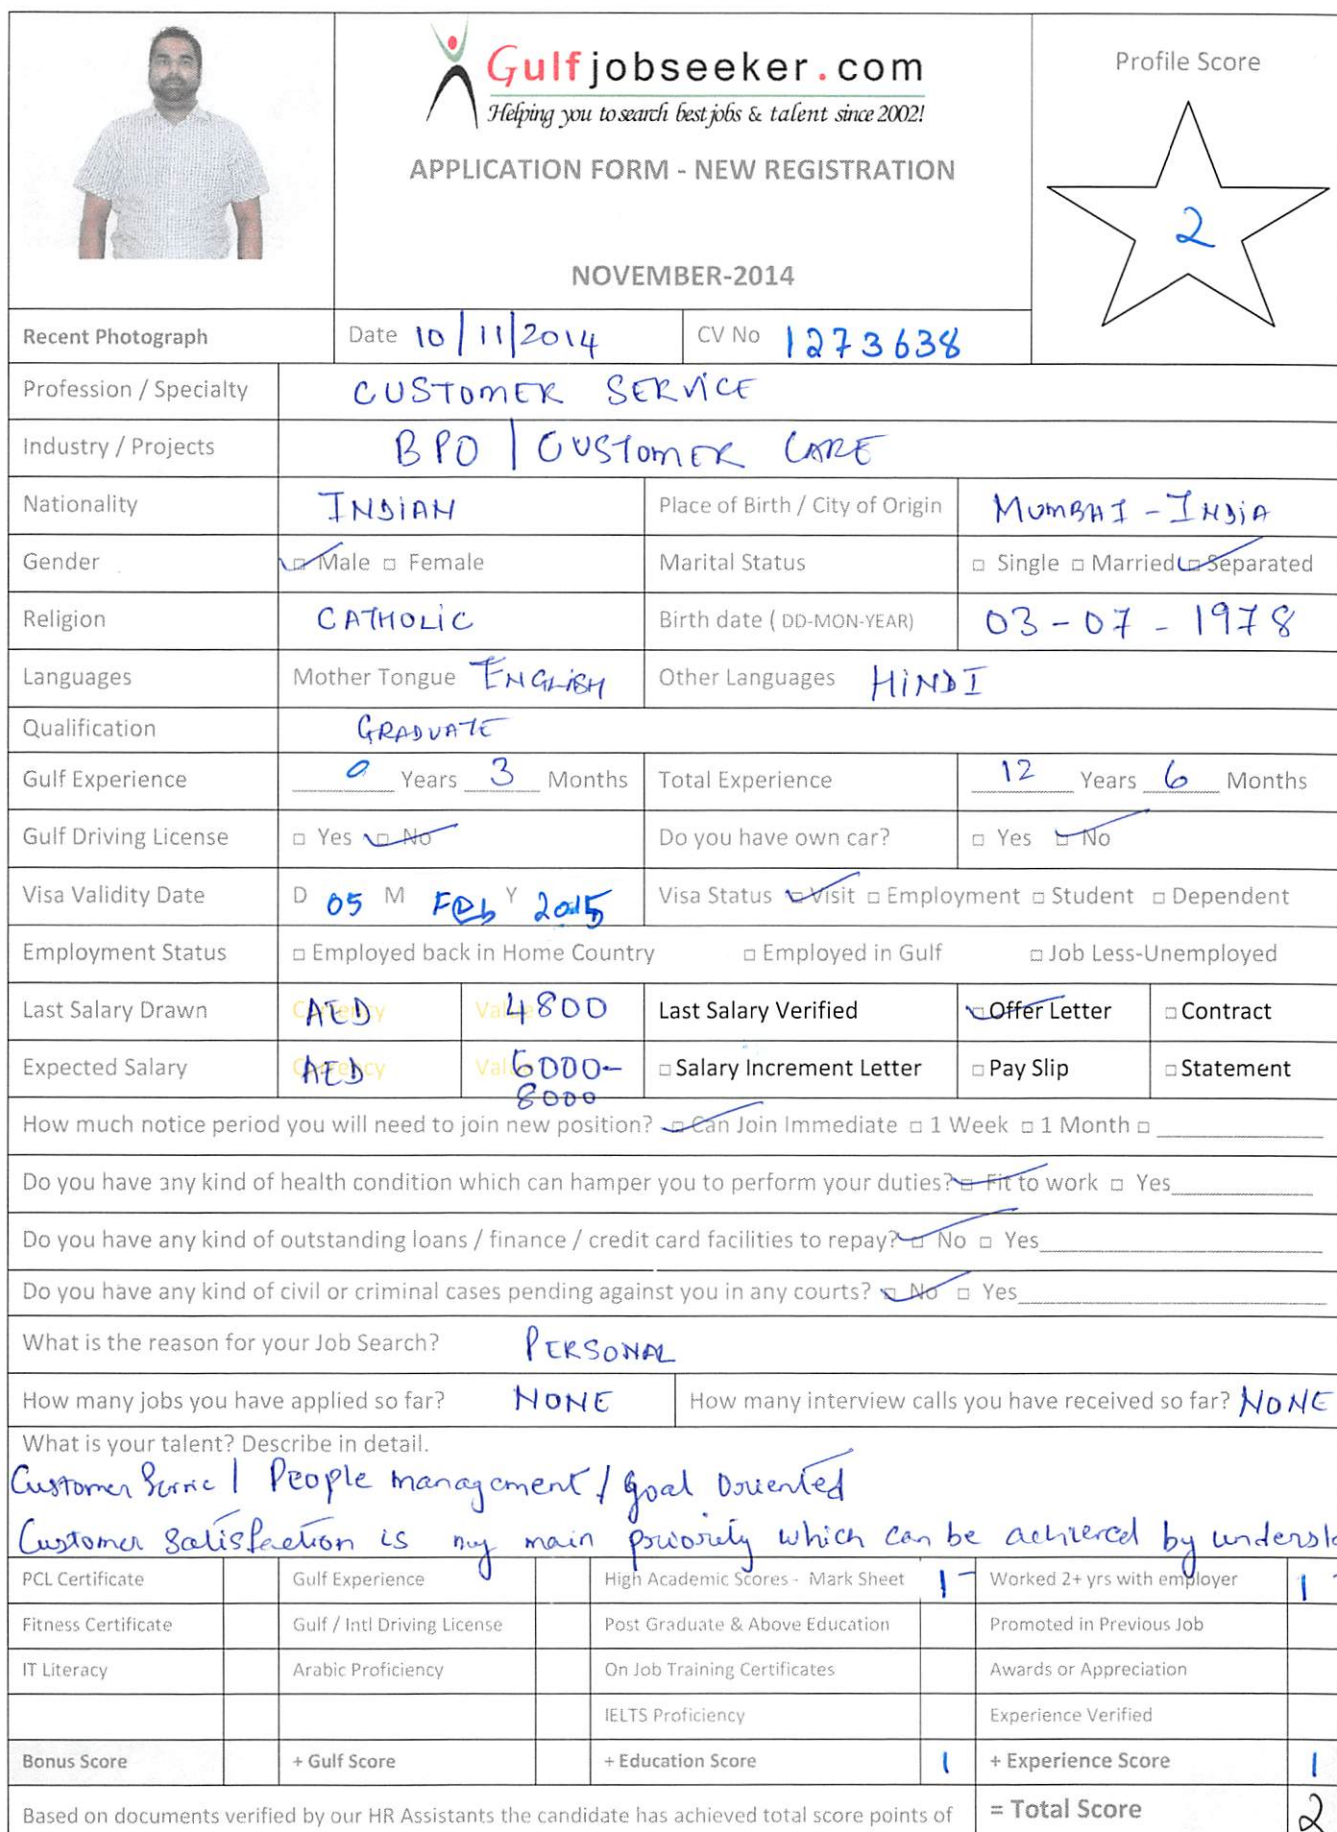 Gulfjobseeker.com
Helping you to search best jobs & talent since 2002!
APPLICATION FORM - NEW REGISTRATION
NOVEMBER-2014
Profile Score
2
Recent Photograph Date 10/11/2014 CV No 1273638
Profession / Specialty CUSTOMER SERVICE
Industry / Projects BPO | CUSTOMER CARE
Nationality INDIAN Place of Birth / City of Origin MUMBAI - INDIA
Gender □ Male □ Female Marital Status □ Single □ Married □ Separated
Religion CATHOLIC Birth date ( DD-MON-YEAR) 03-07-1978
Languages Mother Tongue ENGLISH Other Languages HINDI
Qualification GRADUATE
Gulf Experience 0 Years 3 Months Total Experience 12 Years 6 Months
Gulf Driving License □ Yes □ No Do you have own car? □ Yes □ No
Visa Validity Date D 05 M Feb Y 2015 Visa Status □ Visit □ Employment □ Student □ Dependent
Employment Status □ Employed back in Home Country □ Employed in Gulf □ Job Less-Unemployed
Last Salary Drawn Currency AED Value 4800 Last Salary Verified □ Offer Letter □ Contract
Expected Salary Currency AED Value 6000-8000 □ Salary Increment Letter □ Pay Slip □ Statement
How much notice period you will need to join new position? □ Can Join Immediate □ 1 Week □ 1 Month □
Do you have any kind of health condition which can hamper you to perform your duties? □ Fit to work □ Yes
Do you have any kind of outstanding loans / finance / credit card facilities to repay? □ No □ Yes
Do you have any kind of civil or criminal cases pending against you in any courts? □ No □ Yes
What is the reason for your Job Search? PERSONAL
How many jobs you have applied so far? NONE How many interview calls you have received so far? NONE
What is your talent? Describe in detail.
Customer Service | People management / Goal Oriented
Customer Satisfaction is my main priority which can be achieved by
PCL Certificate Gulf Experience High Academic Scores - Mark Sheet 1 Worked 2+ yrs with employer 1
Fitness Certificate Gulf / Intl Driving License Post Graduate & Above Education Promoted in Previous Job
IT Literacy Arabic Proficiency On Job Training Certificates Awards or Appreciation
IELTS Proficiency Experience Verified
Bonus Score + Gulf Score + Education Score 1 + Experience Score 1
Based on documents verified by our HR Assistants the candidate has achieved total score points of = Total Score 2